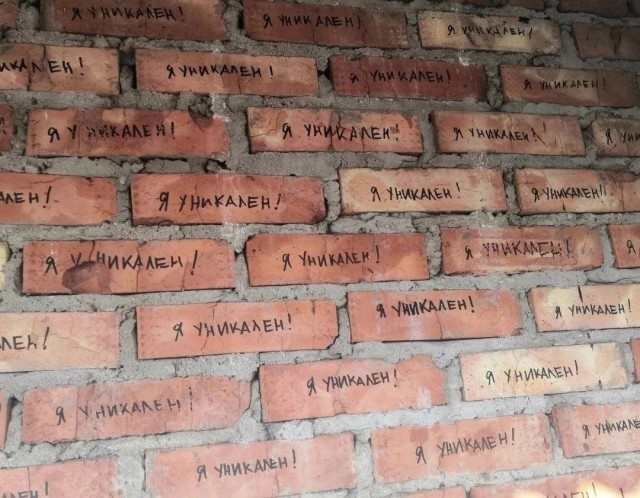 Я УНИКАЛЕН!
Я УНИКАЛЕН!
Я УНИКАЛЕН!
ИКАЛЕН!
Я УНИКАЛЕН!
Я УНИКАЛЕН!
Я УНИКАЛЕН!
Я УНИКАЛЕН!
Я УНИКАЛЕН!
Я УНИКАЛЕН!
Я УНИ
АЛЕН!
Я УНИКАЛЕН!
Я УНИКАЛЕН!
Я УНИКАЛЕН!!
Я УНИКАЛЕН!
Я УНИКАЛЕН!
Я УНИКАЛЕН!
Я
ЛЕН!
Я УНИКАЛЕН!
Я УНИКАЛЕН!
Я УНИКАЛЕН!
Я УНИКАЛЕН!
Я УНИКАЛЕН!
Я УНИКАЛЕН!
Я УНИКАЛЕН!
Я УНИКАЛЕН!
Я УНИКАЛЕ